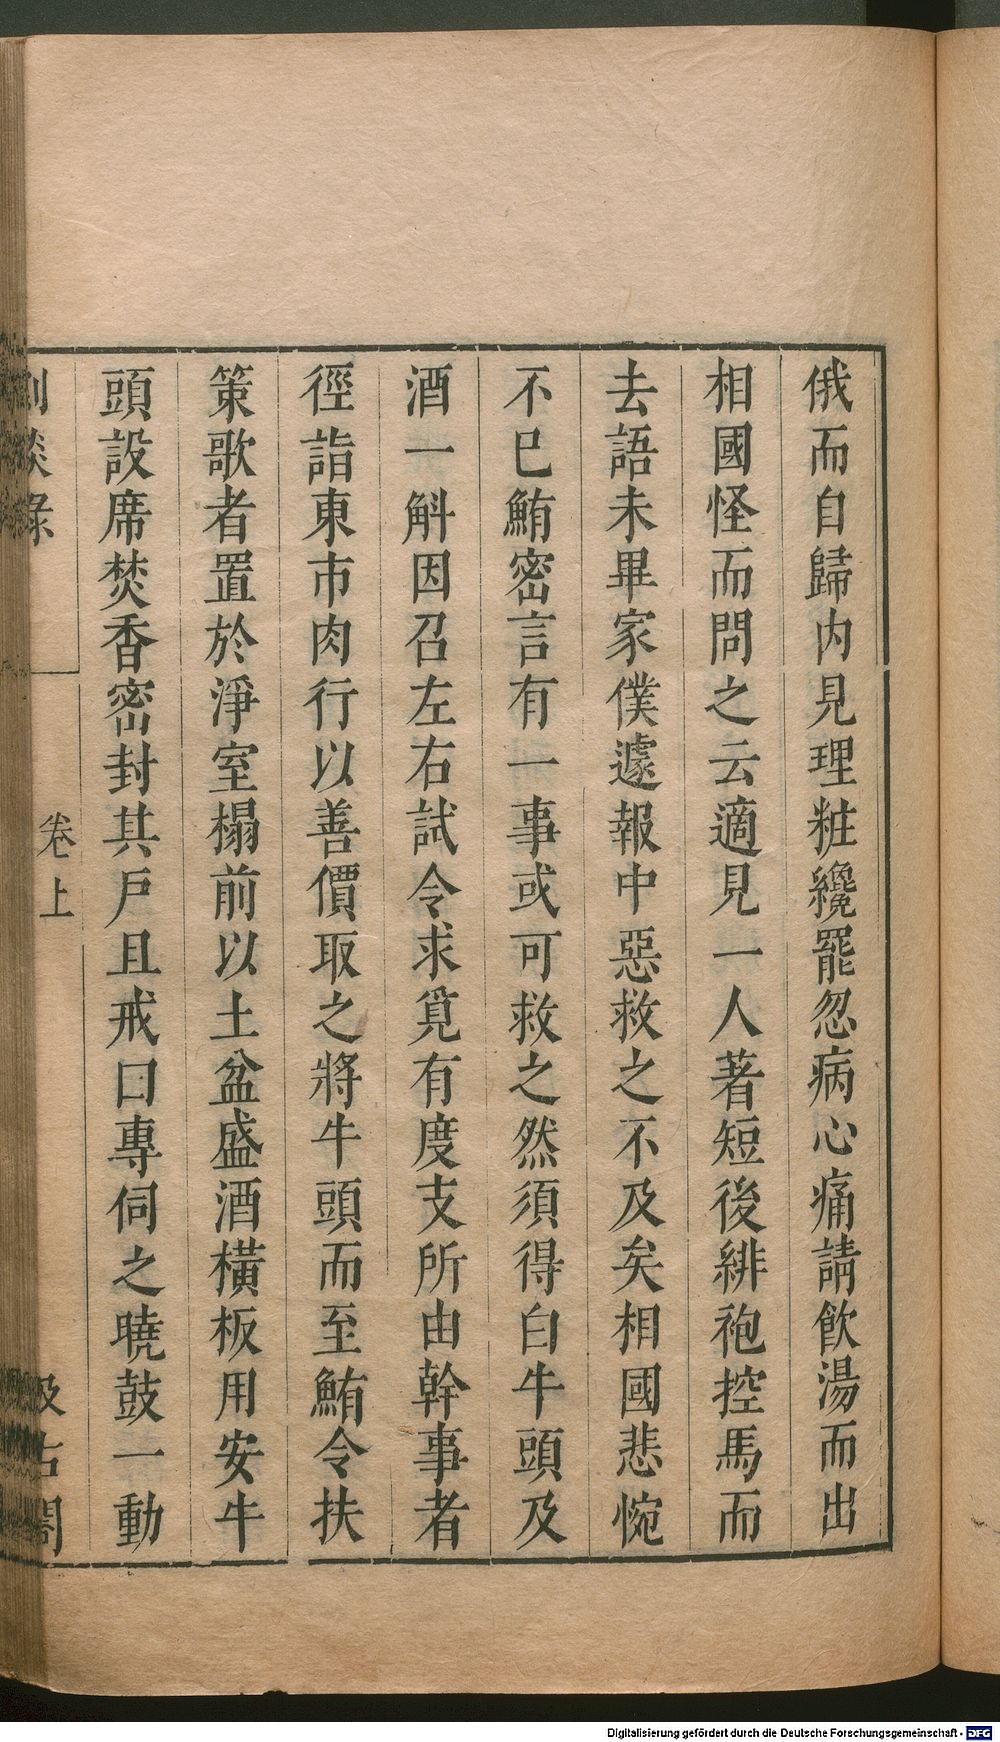 俄而自歸內見理粧纔罷忽病心痛請飮湯而出
相國怪而問之云適見一人著短後緋袍控馬而
去語未畢家僕遽報中惡救之不及矣相國悲惋
不巳鮪密言有一事或可救之然須得白牛頭及
酒一斛因召左右試令求覓有度支所由幹事者
徑詣東市肉行以善價取之將牛頭而至鮪令扶
策歌者置於淨室榻前以土盆盛酒橫板用安牛
頭設席焚香密封其戶且戒曰專伺之曉鼓一動
劇談錄
卷上
汲古閣
Digitalisierung gefördert durch die Deutsche Forschungsgemeinschaft - DFG